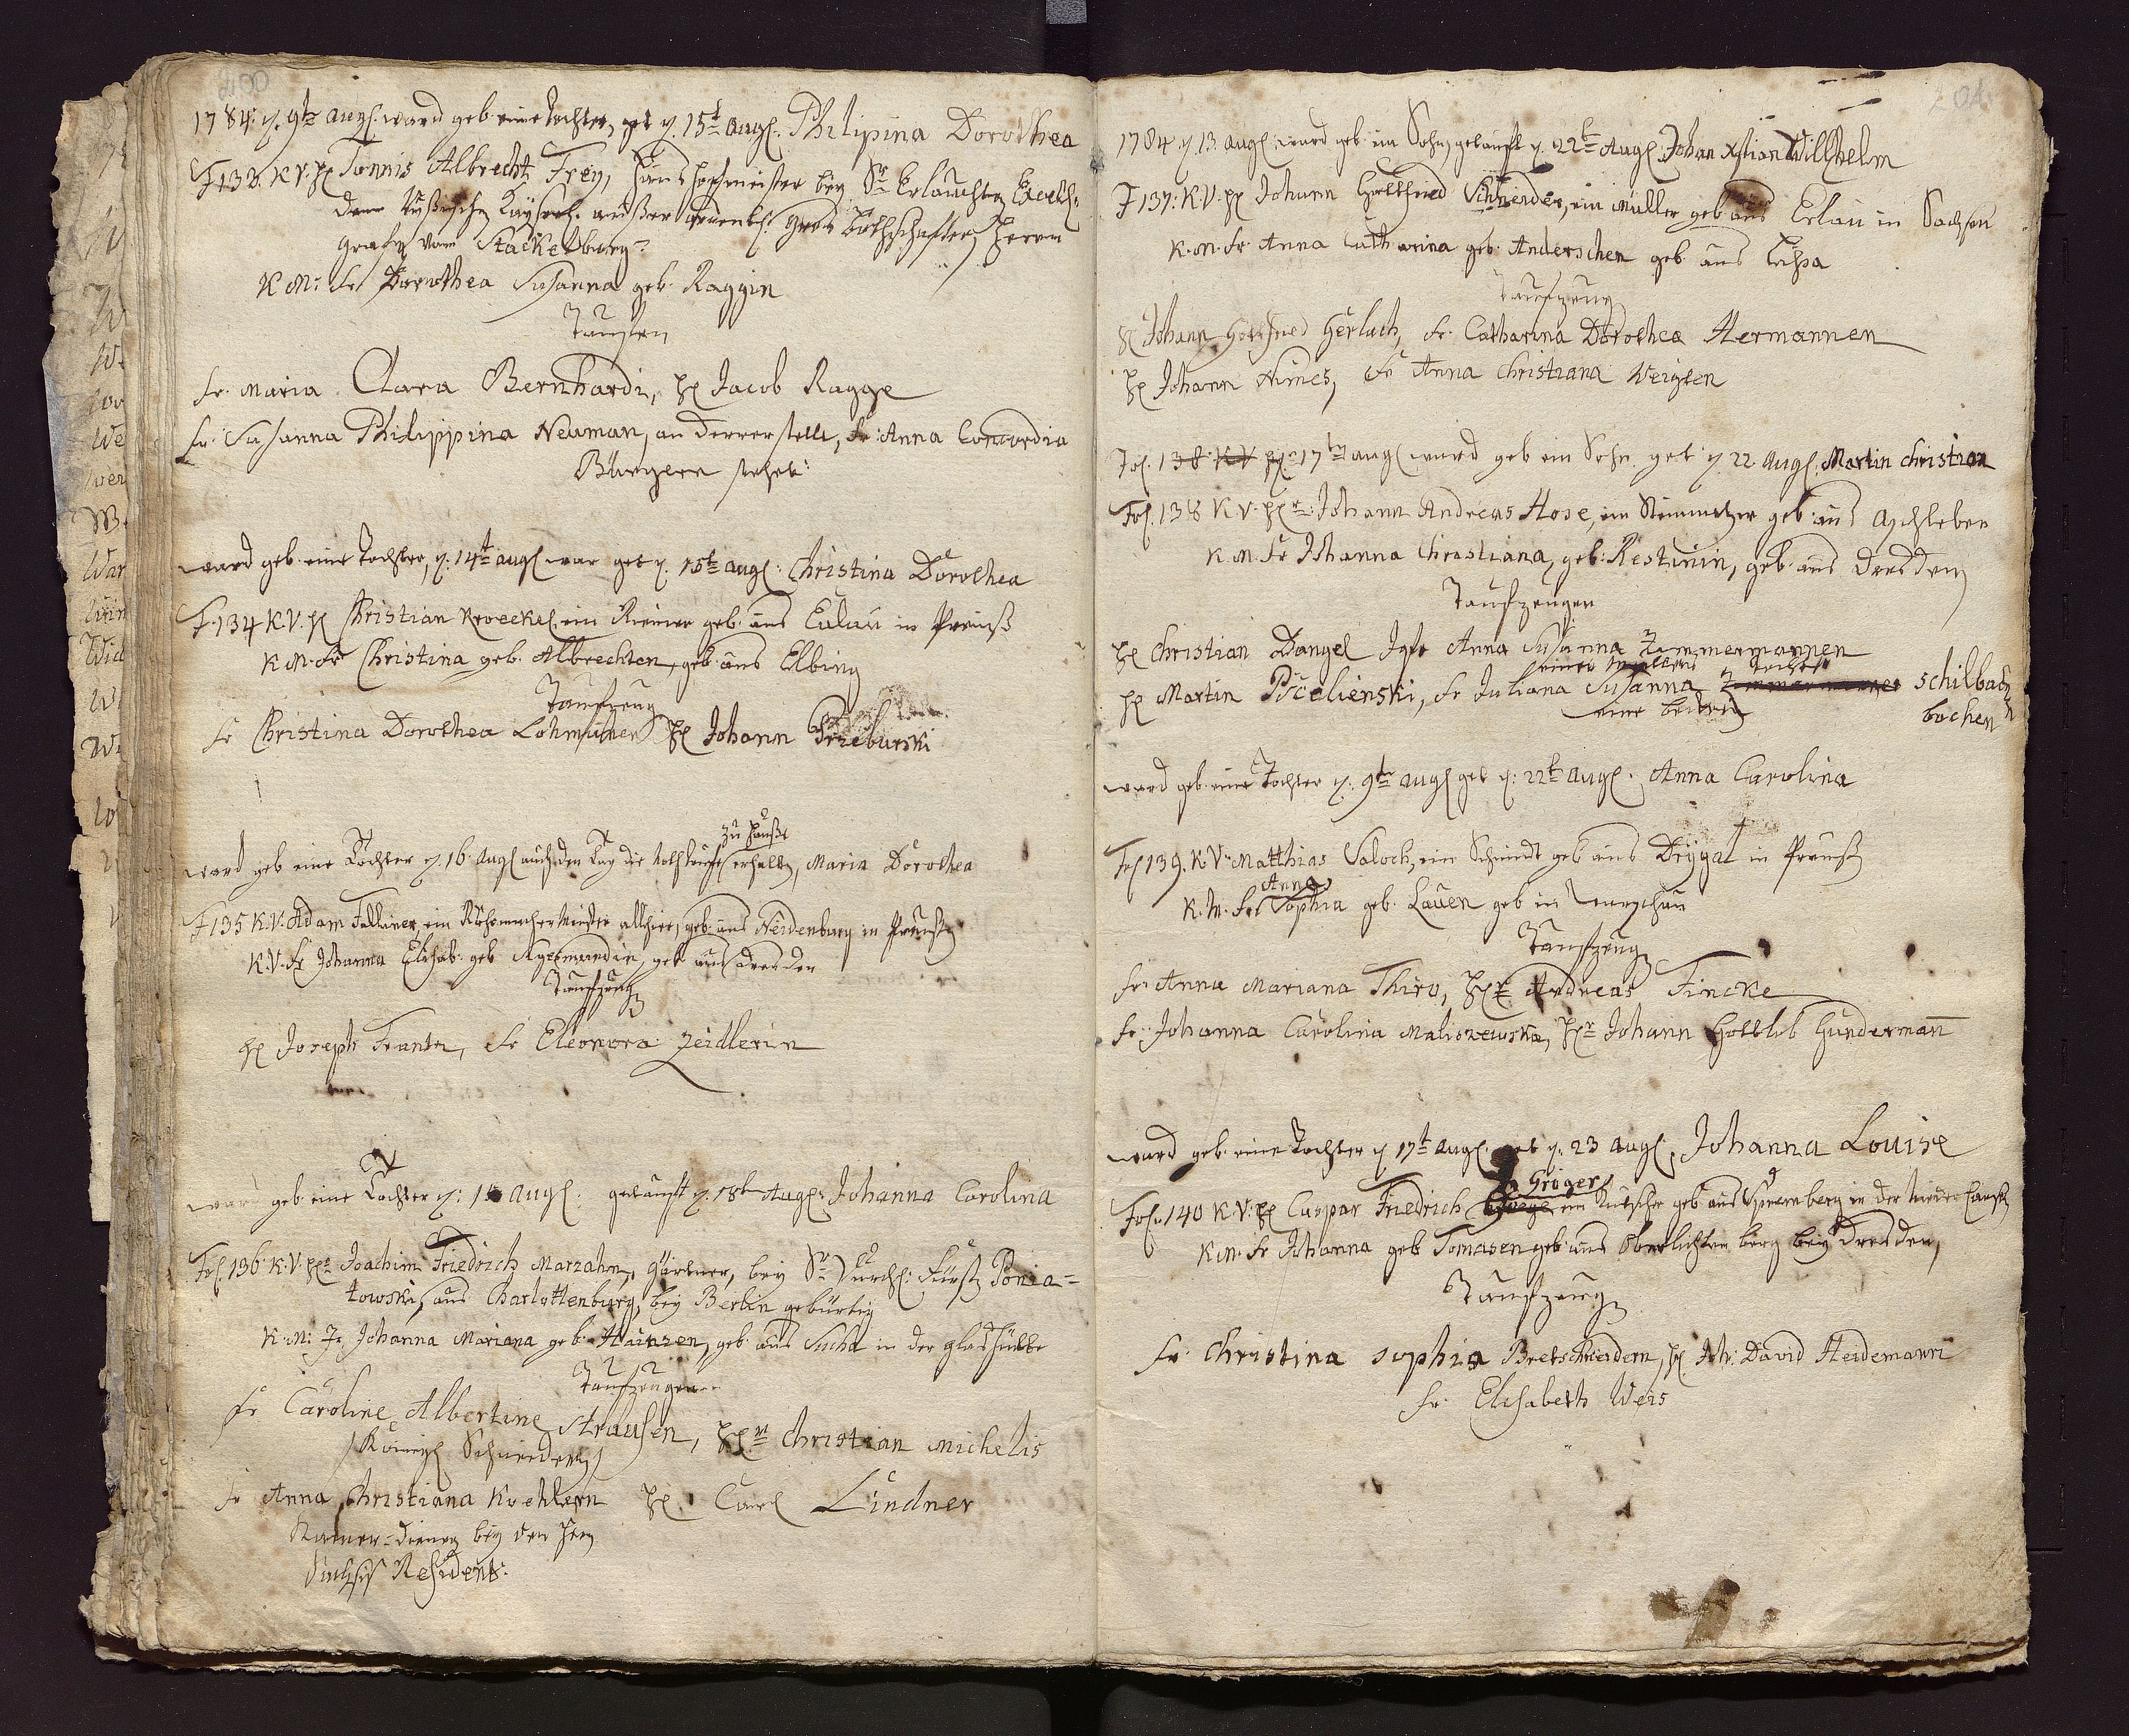 200
1784: d. 9ten augl. ward geb. eine Tochter, get d. 15t augl. Philipina Dorothea
F 133. K V. H Tonnis Albrecht Frey, Haushofmeister bey Sr Erlauchten Excell:
Kayserl. außer ordentl. gros Bothschafter, Herrn
grafen von Stackelburg
K M: Fr Dorothea Susanna geb. Raggin
Tauften
Fr. Maria Clara Bernhardi, H Jacob Ragge
Fr. Susanna Philippina Neuman, an derer stelle, Fr. Anna Concordia
Bürgern stehet:
ward geb. eine Tochter, d. 14t augl war get d. 15ten augl: Christina Dorothea
F. 134 K V. H Christian ein Riemer geb. aus Eulau in Preuss
K M. Fr Christina geb. Albrechten, geb. aus Elbing
Taufzeug
Fr Christina Dorothea H Johann Przeburski
ward geb eine Tochter d 16 Augl auch den Tag die Nothtauffe zu Hauße erhalten, Maria Dorothea
F 135 K V. Adam ein allhier, geb. aus Neidenburg in Preuss
K. V. Fr Johanna Elisab. geb geb aus Dresden
Taufzeug
H Joseph Franter, Fr Eleonora Zeidlerin
ward geb. eine Tochter d: augl. getauft d. 18t Augl: Johanna Carolina
Fol. 136 K V. Hr Joachim Friedrich Marzahn, Gärtner, bey Sr Durchl: Fürst Ponia=
towski, aus Charlottenburg, bey Berlin gebürtig
K. M: Fr. Johanna Mariana geb. Hainzen, geb. aus Sucha in der glashütte
Taufzeugen
Fr Caroline Albertine Strausen, Hr Christian Michelis
Königl Schneider
Fr Anna Christiana Koehlern H. Carl Lindner
Kamer=diener bey den Herrn
Resident.
201
1784 d 13 augl ward geb ein Sohn, getauft d. 22t Augl Johan Xstian Willhelm
F 137: K. V. H Johann Gottfried Schneider, ein Müller geb aus Erlau in Sachsen
K. M. Fr. Anna Catharina geb. Anderschen geb aus
Taufzeug
H Johann Gottfried Gerlach, Fr. Catharina Dorothea Hermannen
H Johann Nimes, Fr Anna Christiana Weigten
Fol. 138 K V H 17ten augl ward geb ein Sohn. get d 22 augl. Martin Christian
Fol. 138 K V. Hr: Johann Andreas Hose, ein Steinmetzer geb. aus Aschleben
K. M. Fr Johanna Christiana, geb: Restinin, geb. aus Dresden
Taufzeugen
H Christian Dangel Igfr Anna Susanna Zimmermannen
eines Tochter
H Martin Pscolienski, Fr Juliana Susanna Zimmermannen schilbach
eine bochen
ward geb. eine Tochter d. 9ten augl get d: 22t augl. Anna Carolina
Fol 139. K V. Matthias Saloch, ein Schmidt geb aus Drygal in Preuss
Anna
K. M. Fr Sophia geb. Lauen geb in Warschau
Taufzeug
Fr. Anna Mariana Thiro, Hr Andreas Fincke
Fr. Johanna Carolina Maliszewska, Hr Johann Gottlib Gunderman̄
ward geb. eine Tochter d 17t augl. get d. 23 augl. Johanna Louise
Gröger
Fol: 140 K V. H Caspar Friedrich ein Kutscher geb aus Spremberg in der Nieder Lausitz
K M. Fr Johanna geb Tomasen geb. aus Oberlichtenberg bey Dresden,
Taufzeug
Fr. Christina Sophia Bretschneidern, H Joh: David Heideman̄
Fr. Elisabeth Weis